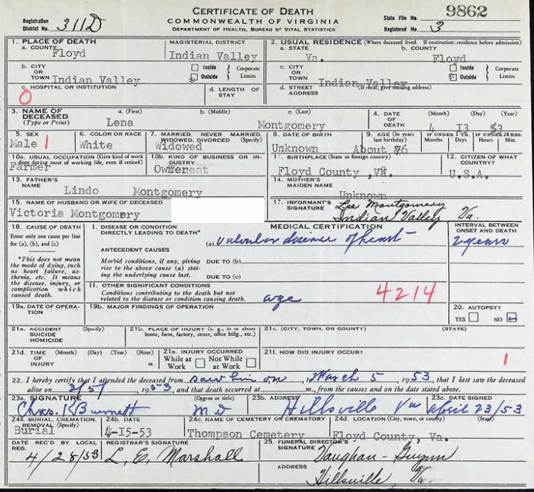 CERTIFICATE OF DEATH
COMMONWEALTH OF VIRGINIA
DEPARTMENT OF HEALTH, BUREAU OF VITAL STATISTICS
Registration District No. 311D
State File No. 9862
Registered No. 3
1. PLACE OF DEATH
a. COUNTY Floyd
MAGISTERIAL DISTRICT Indian Valley
2. USUAL RESIDENCE (Where deceased lived. If institution: residence before admission)
a. STATE Va.
b. COUNTY Floyd
b. CITY OR TOWN Indian Valley
Inside Outside Corporate Limits
c. CITY OR TOWN Indian Valley
Inside Outside Corporate Limits
c. HOSPITAL OR INSTITUTION
d. LENGTH OF STAY
d. STREET ADDRESS (If rural, give mailing address)
0
3. NAME OF DECEASED (Type or Print)
a. (First) Lena
b. (Middle)
c. (Last) Montgomery
4. DATE OF DEATH (Month) (Day) (Year) 4 13 53
5. SEX Male 1
6. COLOR OR RACE White
7. MARRIED, NEVER MARRIED, WIDOWED, DIVORCED (Specify) Widowed
8. DATE OF BIRTH Unknown
9. AGE (In years last birthday) About 76
IF UNDER 1 YEAR
IF UNDER 24 HRS.
10a. USUAL OCCUPATION (Give kind of work done during most of working life, even if retired) Farmer
10b. KIND OF BUSINESS OR INDUSTRY
11. BIRTHPLACE (State or foreign country) Floyd County, VA.
12. CITIZEN OF WHAT COUNTRY? U.S.A.
13. FATHER'S NAME Lindo Montgomery
14. MOTHER'S MAIDEN NAME Unknown
15. NAME OF HUSBAND OR WIFE OF DECEASED Victoria Montgomery
17. INFORMANT'S SIGNATURE Lee Montgomery
Indian Valley Va.
18. CAUSE OF DEATH
Enter only one cause per line for (a), (b), and (c)
*This does not mean the mode of dying, such as heart failure, asthenia, etc. It means the disease, injury, or complication which caused death.
MEDICAL CERTIFICATION
I. DISEASE OR CONDITION DIRECTLY LEADING TO DEATH*
(a) Valvular disease of heart
INTERVAL BETWEEN ONSET AND DEATH 2 years
ANTECEDENT CAUSES
Morbid conditions, if any, giving rise to the above cause (a) stating the underlying cause last.
DUE TO (b)
DUE TO (c)
II. OTHER SIGNIFICANT CONDITIONS
Conditions contributing to the death but not related to the disease or condition causing death.
age
4214
19a. DATE OF OPERATION
19b. MAJOR FINDINGS OF OPERATION
20. AUTOPSY?
YES NO
21a. ACCIDENT SUICIDE HOMICIDE
21b. PLACE OF INJURY (e.g., in or about home, farm, factory, street, office bldg., etc.)
21c. (CITY, TOWN, OR COUNTY) (STATE)
21d. TIME OF INJURY (Month) (Day) (Year) (Hour)
21e. INJURY OCCURRED
While at Work Not While at Work
21f. HOW DID INJURY OCCUR?
1
22. I hereby certify that I attended the deceased from saw him on March 5, 1953, that I last saw the deceased alive on 3/5, 1953, and that death occurred at m., from the causes and on the date stated above.
23a. SIGNATURE Chas. K Burnett
(Degree or title) M D
23b. ADDRESS Hillsville Va
23c. DATE SIGNED April 23/53
24a. BURIAL, CREMATION, REMOVAL (Specify) Burial
24b. DATE 4-15-53
24c. NAME OF CEMETERY OR CREMATORY Thompson Cemetery
24d. LOCATION (City, town, or county) (State) Floyd County, Va.
DATE REC'D BY LOCAL REG. 4/28/53
REGISTRAR'S SIGNATURE L. E. Marshall
25. FUNERAL DIRECTOR'S SIGNATURE Vaughan-Guynn
ADDRESS Hillsville, Va.